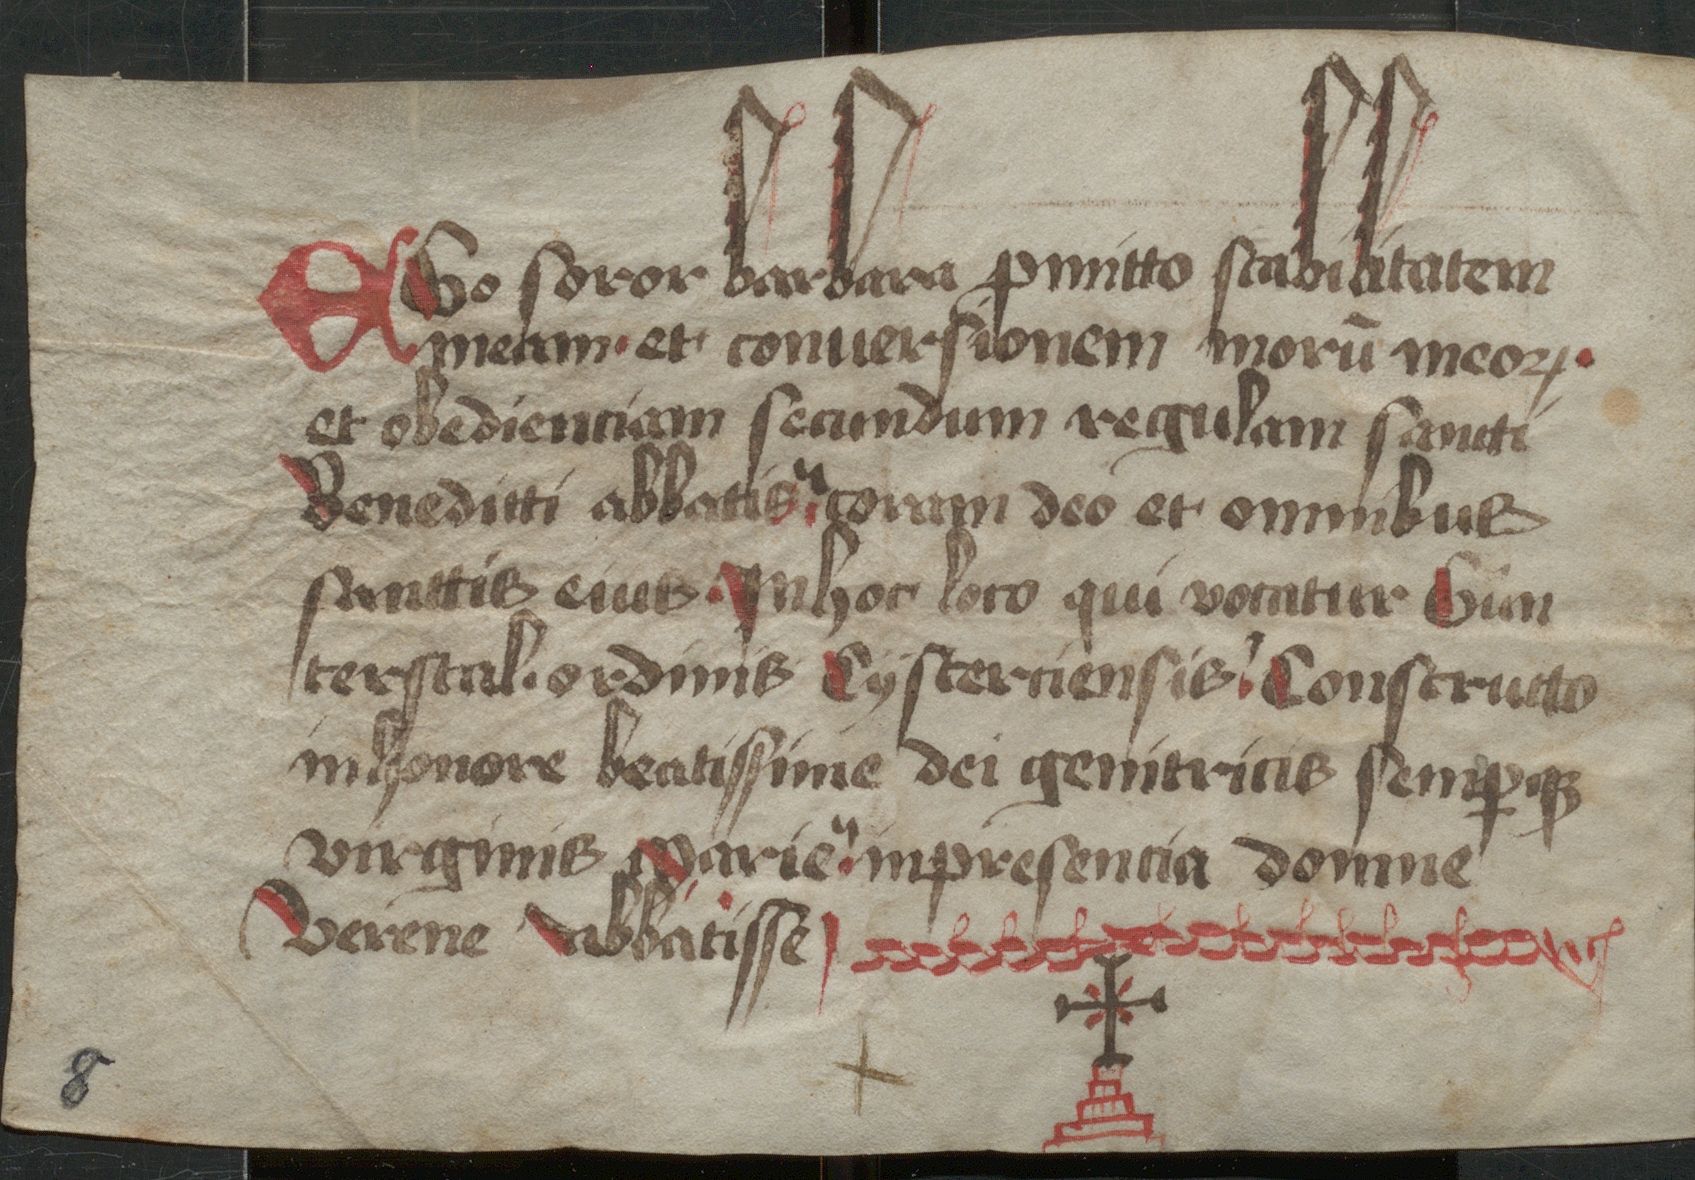 EGo soror barbara ꝓmitto stabilitatem
meam· et conuersionem morū meoꝝ·
et obedienciam secundum regulam sancti
Benedicti abbatis· coram deo et omnibus
sanctis eius· In hoc loco qui vocatur Gun
terstal· ordinis Cysterciensis· Constructo
in honore beatissime dei genitricis semꝑqꝫ
virginis Marie· in presencia domine
Verene abbatisse
8